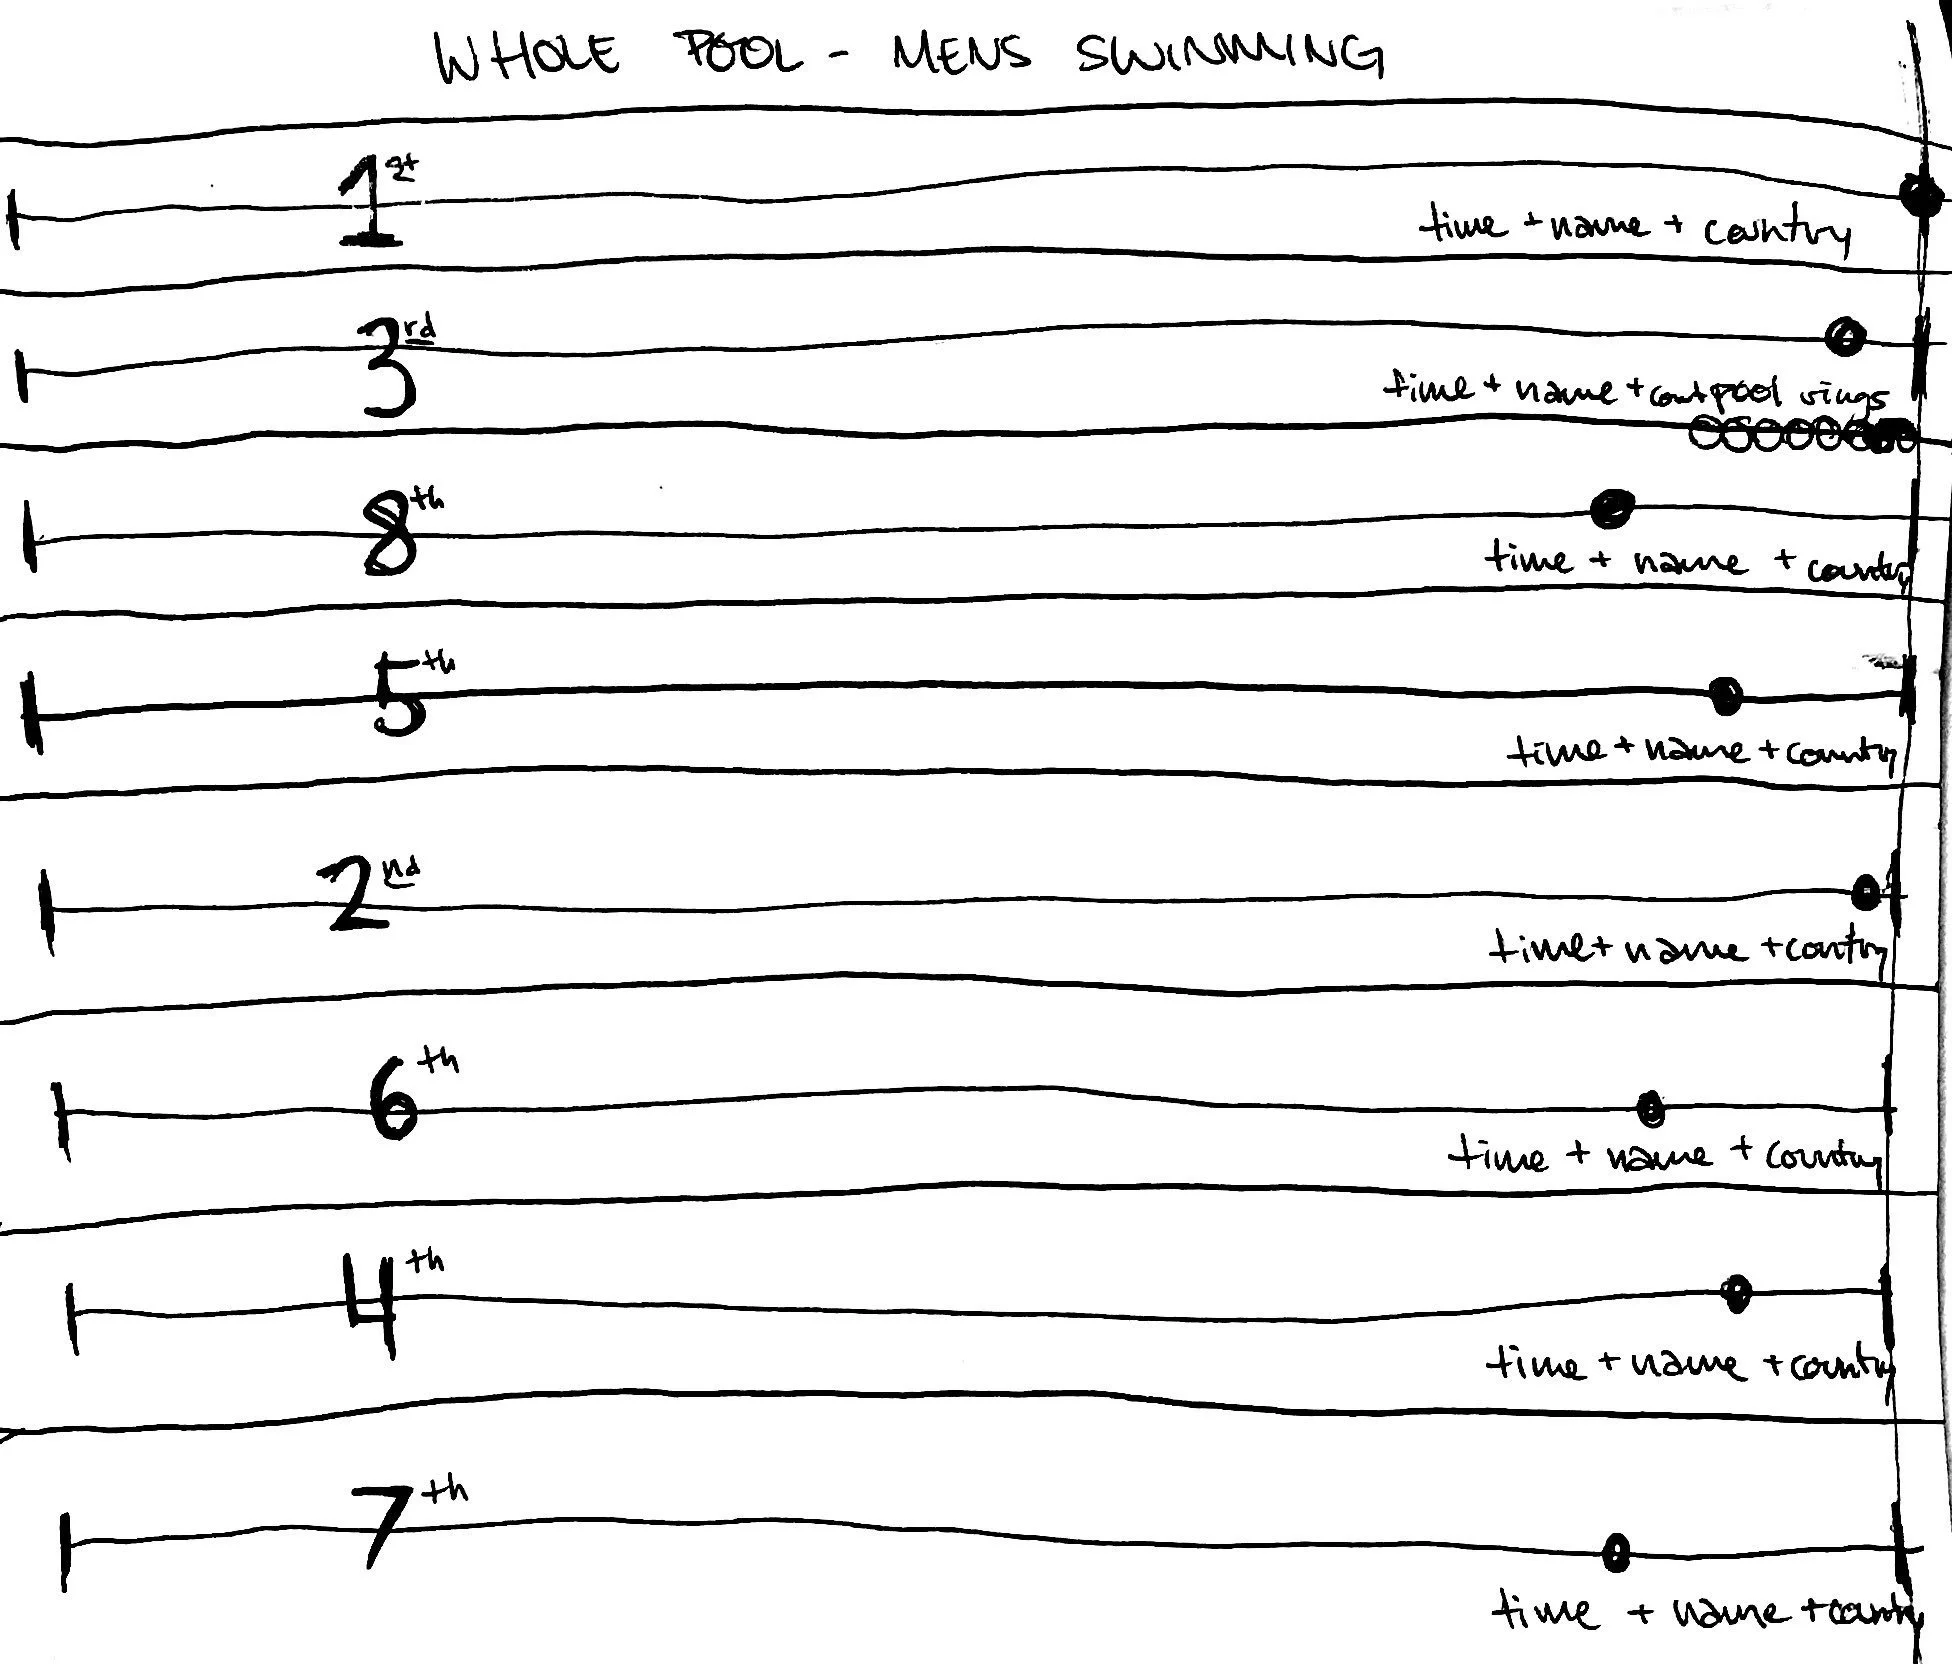 WHOLE POOL - MENS SWIMMING
1st
time + name + country
3rd
time + name + count pool rings
8th
time + name + country
5th
time + name + country
2nd
time + name + contry
6th
time + name + country
4th
time + name + country
7th
time + name + country